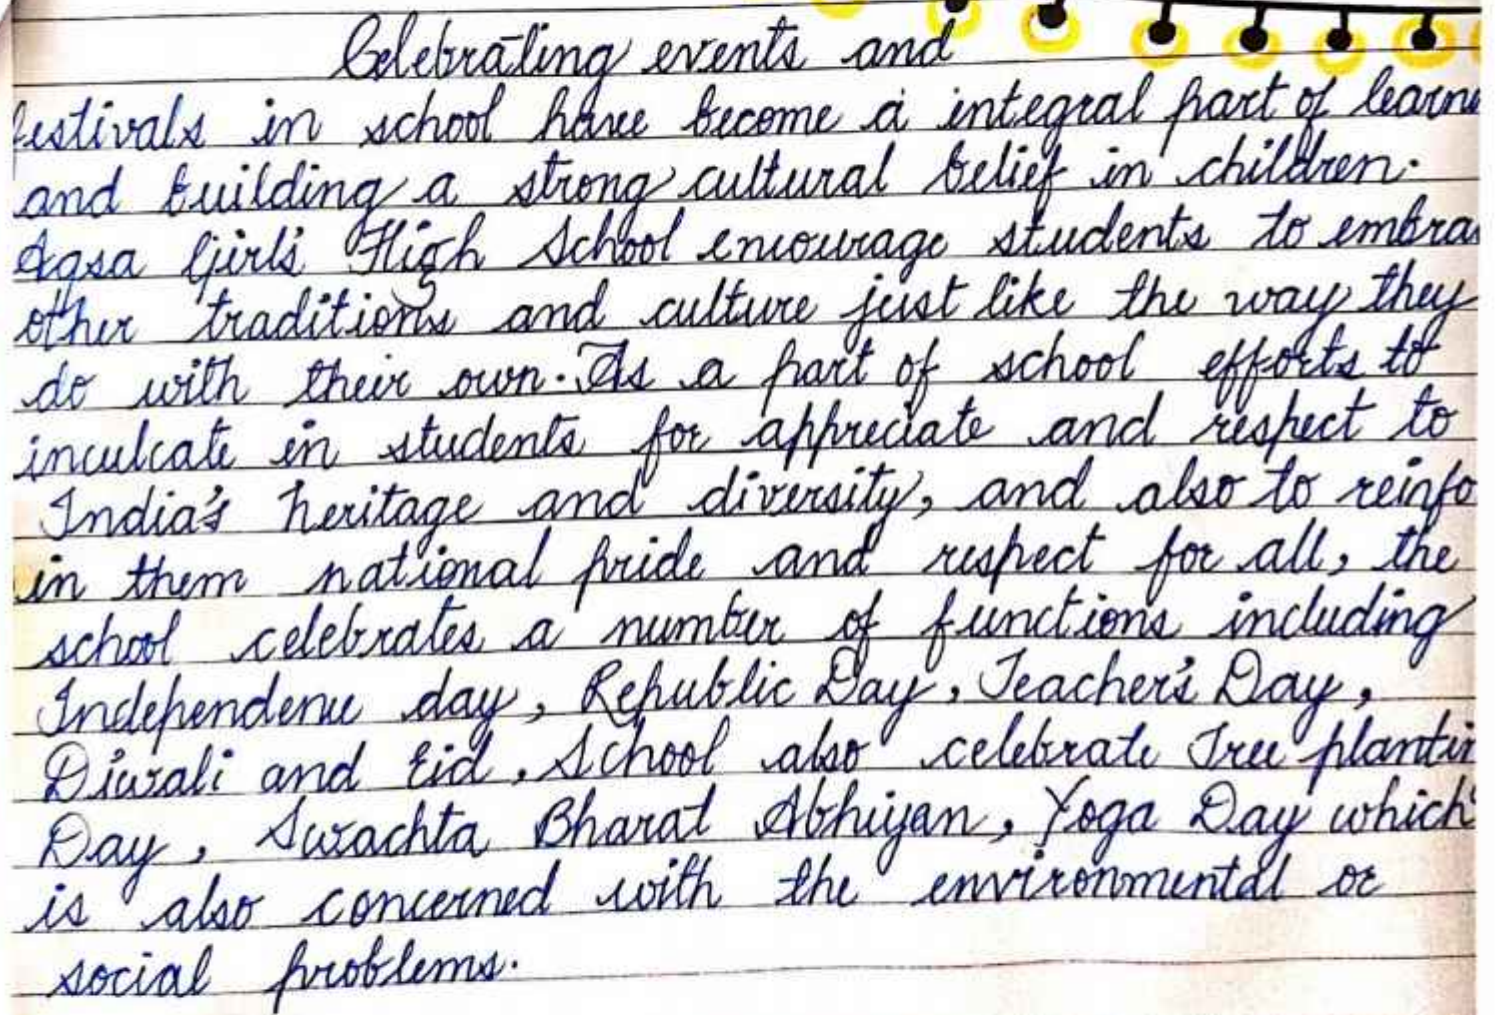 Celebrating events and
festivals in school have become a integral part of learn
and building a strong cultural belief in children.
Aqsa Girls' High School encourage students to embra
other traditions and culture just like the way they
do with their own. As a part of school efforts to
inculcate in students for appreciate and respect to
India's heritage and diversity, and also to reinfo
in them national pride and respect for all, the
school celebrates a number of functions including
Independence day, Republic Day, Teacher's Day,
Diwali and Eid, School also celebrate Tree plantin
Day, Swachta Bharat Abhiyan, Yoga Day which
is also concerned with the environmental or
social problems.